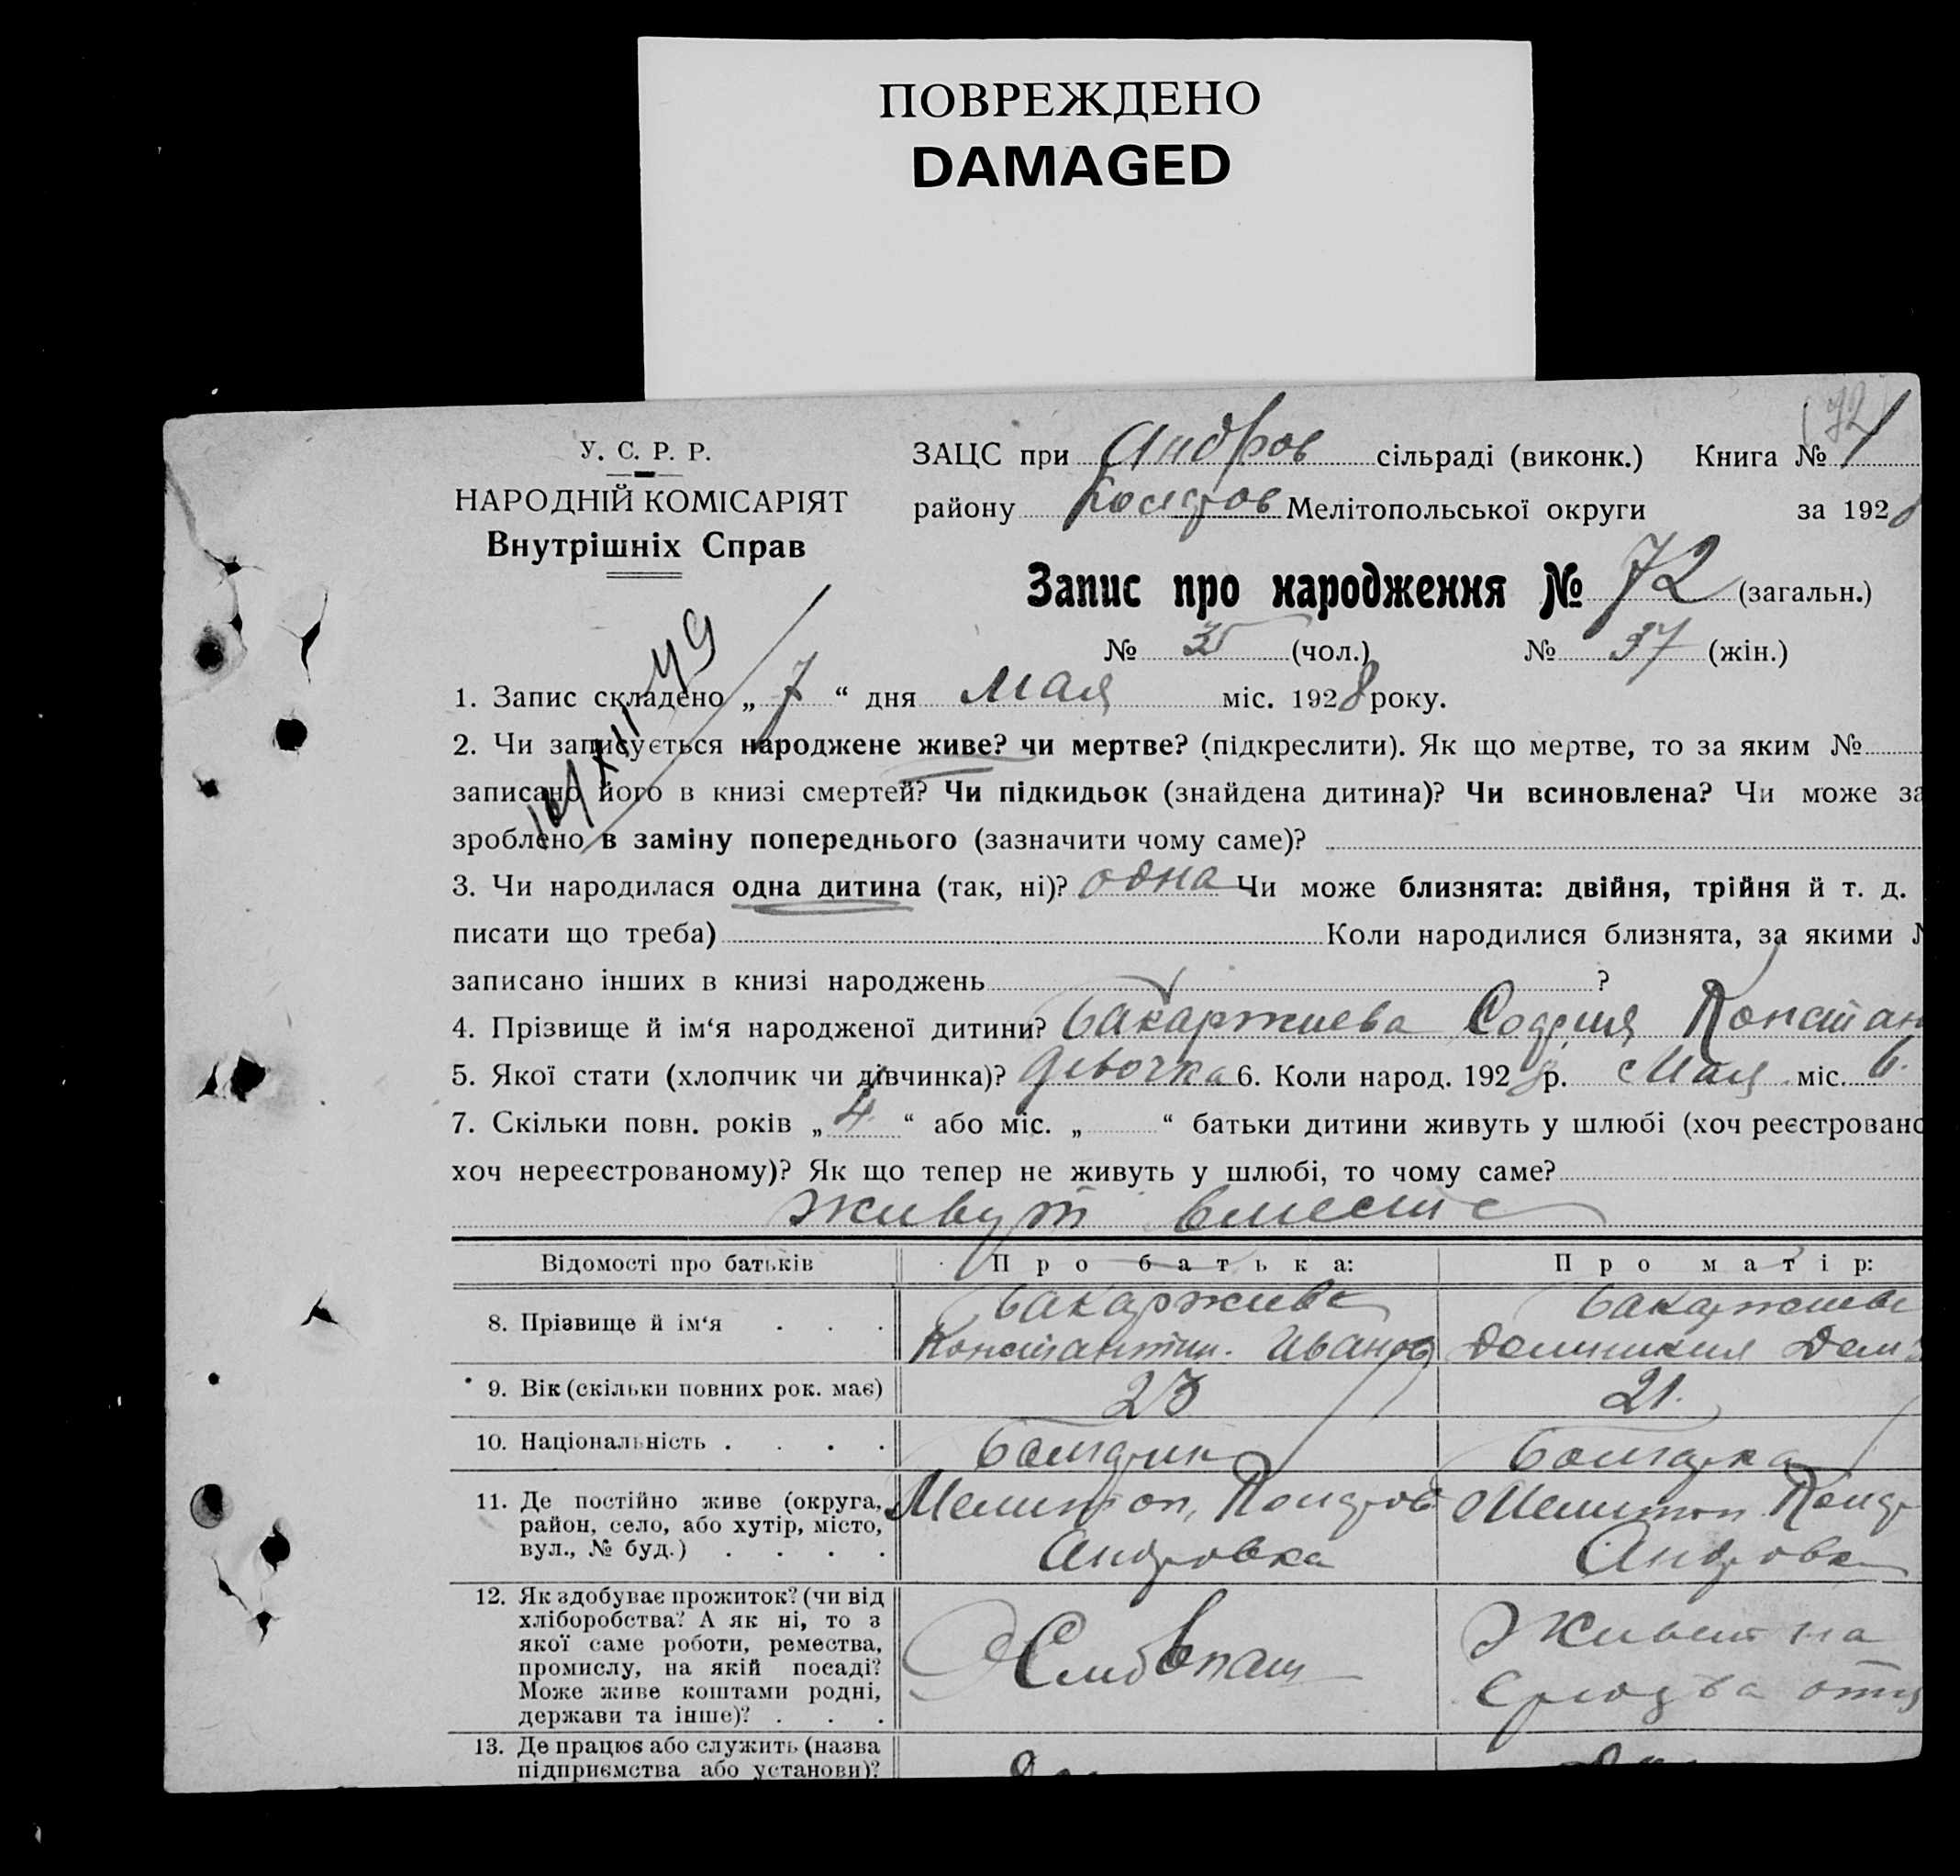 ПОВРЕЖДЕНО
DAMAGED
(72)
У. С. Р. Р.
НАРОДНІЙ КОМІСАРІЯТ
Внутрішніх Справ
ЗАЦС при Андров сільраді (виконк.) Книга № 1
району Мелітопольської округи за 1928
Запис про народження № 72 (загальн.)
№ (чол.) № 37 (жін.)
1. Запис складено „ 7 “ дня мая міс. 1928 року.
2. Чи записується народжене живе? чи мертве? (підкреслити). Як що мертве, то за яким №
записано його в книзі смертей? Чи підкидьок (знайдена дитина)? Чи всиновлена? Чи може за
зроблено в заміну попереднього (зазначити чому саме)?
3. Чи народилася одна дитина (так, ні)? одна Чи може близнята: двійня, трійня й т. д.
писати що треба) Коли народилися близнята, за якими №
записано інших в книзі народжень ?
4. Прізвище й ім‘я народженої дитини? Бакаржиева София Констан
5. Якої стати (хлопчик чи дівчинка)? девочка 6. Коли народ. 1928 р. Мая міс. 6.
7. Скільки повн. років „ 4 “ або міс. „ “ батьки дитини живуть у шлюбі (хоч реєстровано
хоч нереєстрованому)? Як що тепер не живуть у шлюбі, то чому саме?
живут вместе
Відомості про батьків Про батька: Про матір:
8. Прізвище й ім‘я . . . Бакаржиев Бакаржиев
Константин. Иванов
9. Вік (скільки повних рок. має) 23 21.
10. Національність . . . . Болгарин Болгарка
11. Де постійно живе (округа, Мелитоп, Мелитоп
район, село, або хутір, місто, Андровка Андровка
вул., № буд.) . . . .
12. Як здобуває прожиток? (чи від
хліборобства? А як ні, то з
якої саме роботи, ремества, Хлебопаш Живет на
промислу, на якій посаді? средства отц
Може живе коштами родні,
держави та інше)? . . .
13. Де працює або служить (назва
підприємства або установи)?